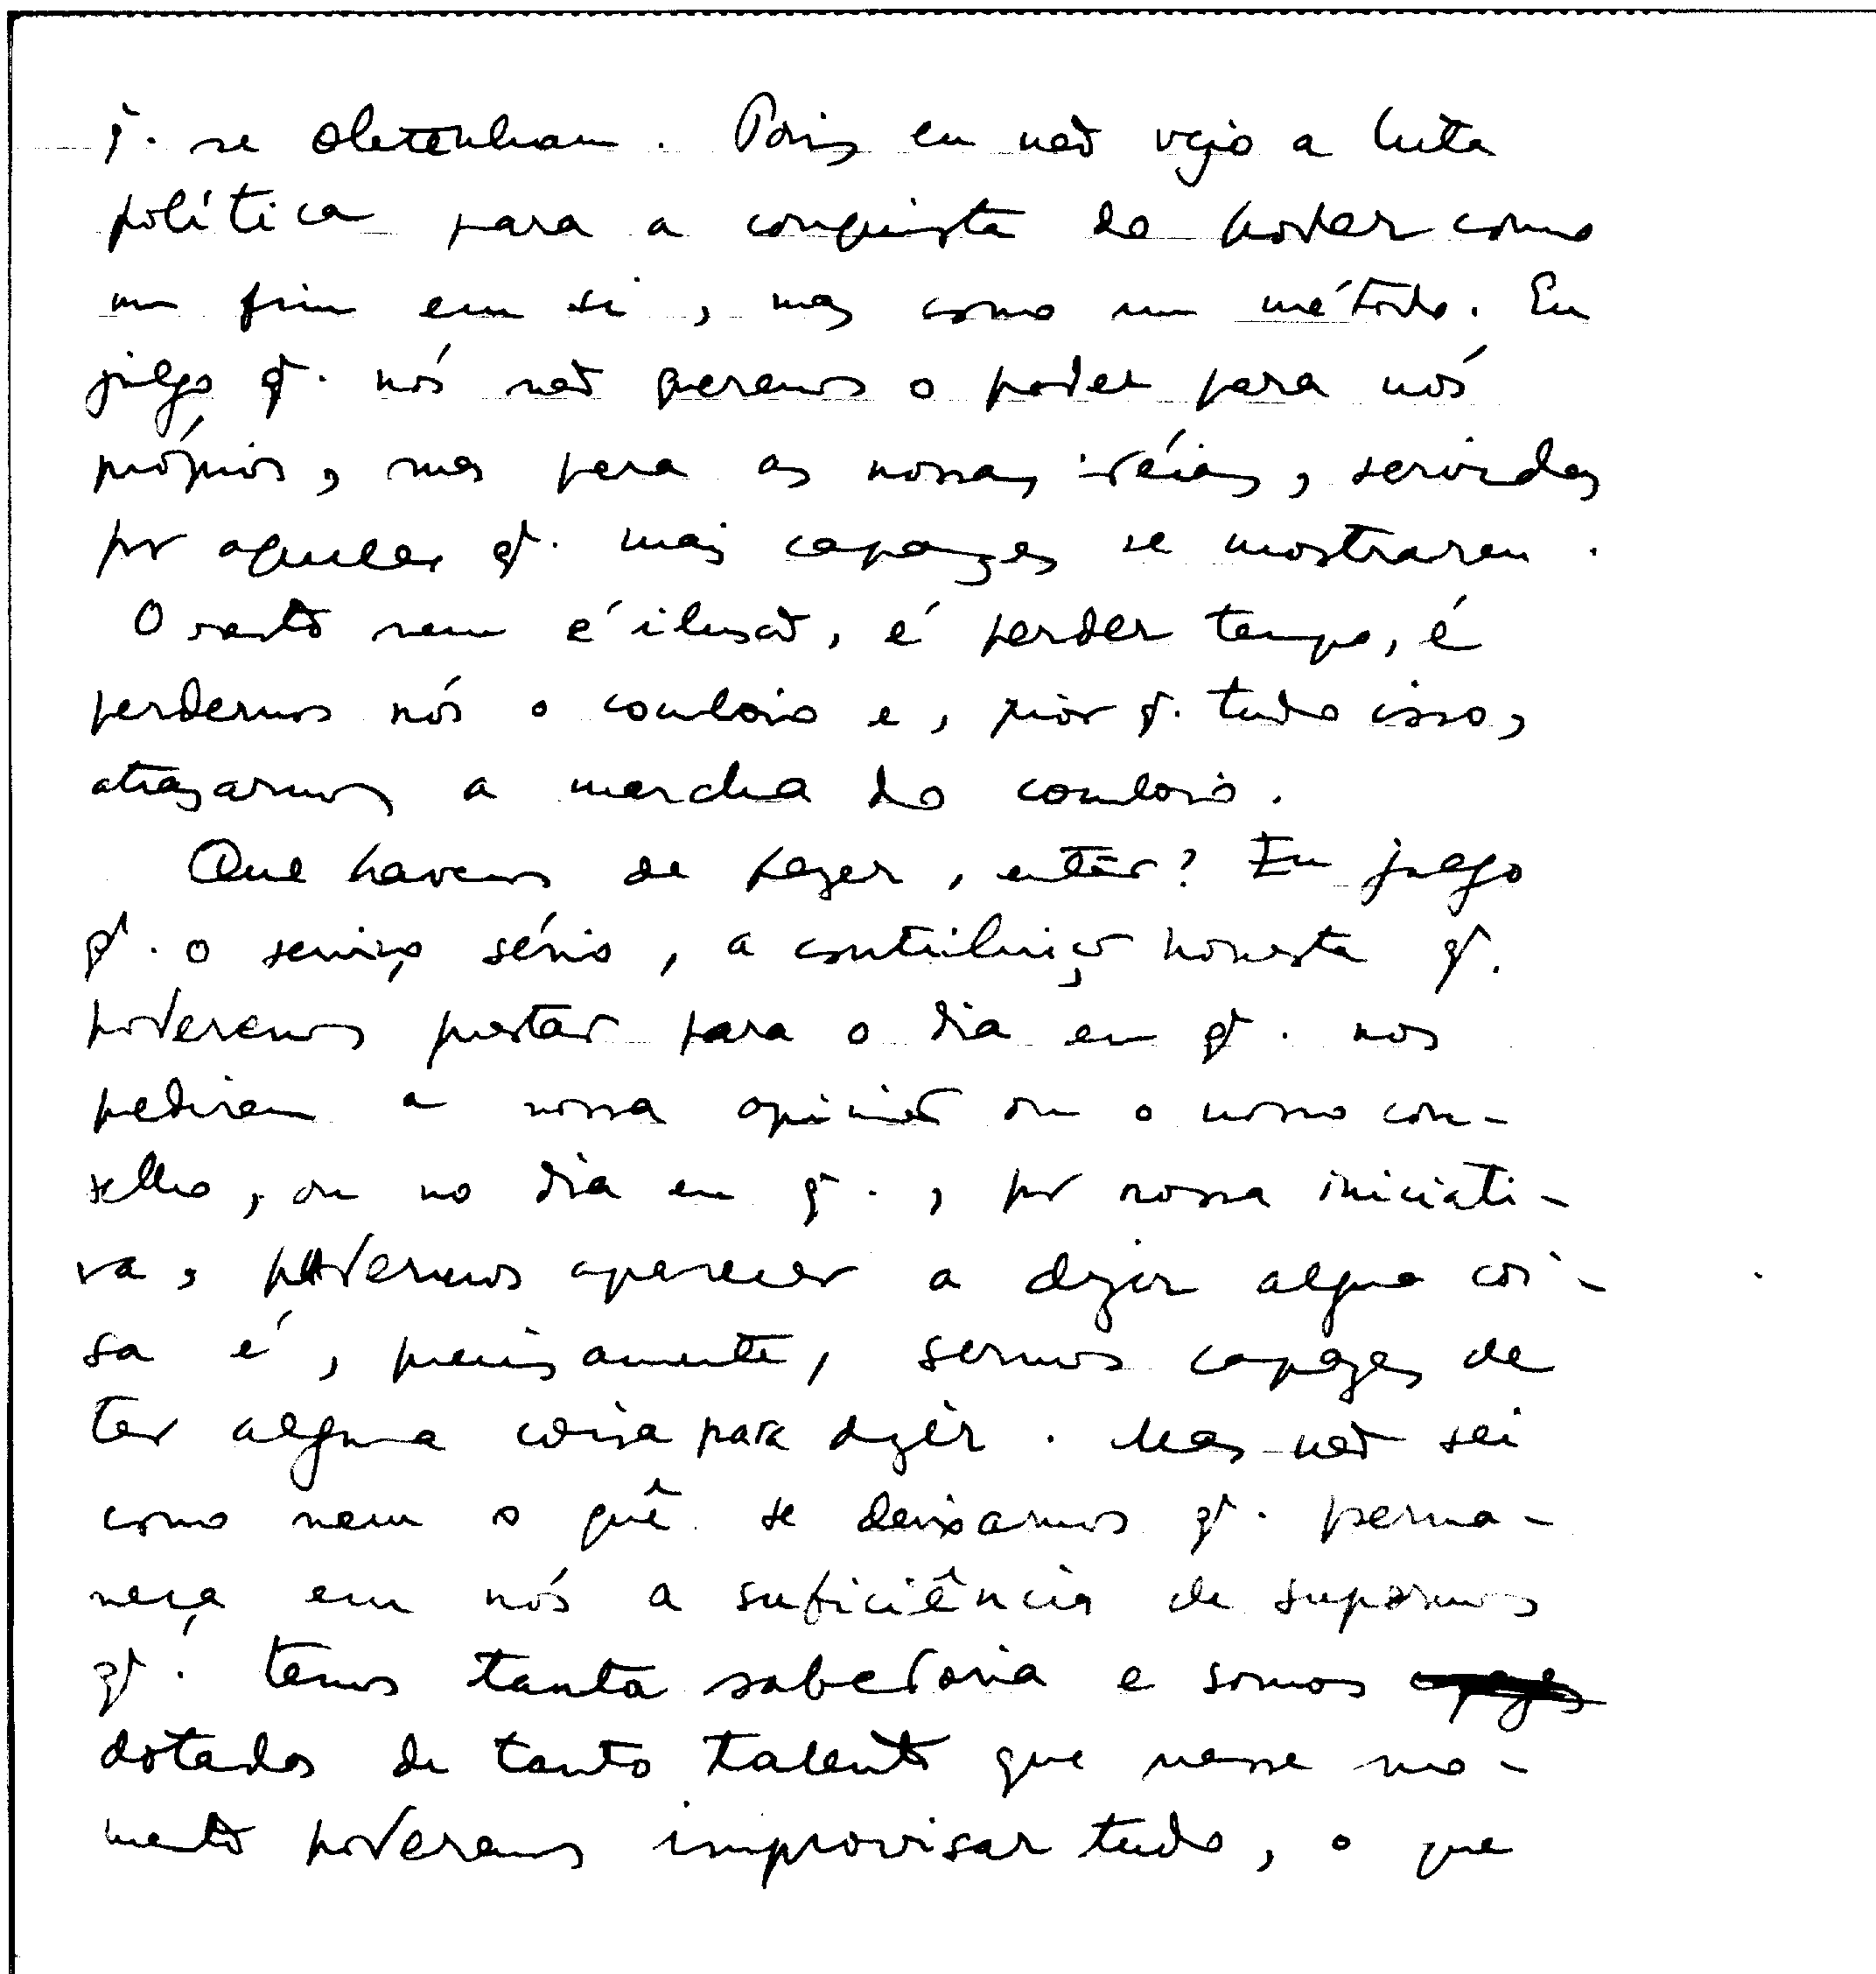 q. se obtenham. Pois eu não vejo a luta
política para a conquista do poder como
um fim em si, mas como um método. Eu
julgo q. nós não queremos o poder para nós
próprios, mas para as nossas idéias, servidas
por aqueles q. mais capazes se mostrarem.
O resto nem é ilusão, é perder tempo, é
perdermos nós o comboio e, pior q. tudo isso,
atrazarmos a marcha do comboio.
Que havemos de fazer, então? Eu julgo
q. o serviço sério, a contribuição honesta q.
poderemos prestar para o dia em q. nos
pedirem a nossa opinião ou o nosso con-
selho, ou no dia em q., por nossa iniciati-
va, podermos aparecer a dizer alguma coi-
sa é, precisamente, sermos capazes de
ter alguma coisa para dizer. Mas não sei
como nem o quê se deixarmos q. perma-
neça em nós a suficiência de supormos
q. temos tanta sabedoria e somos
dotados de tanto talento que nesse mo-
mento poderemos improvisar tudo, o que